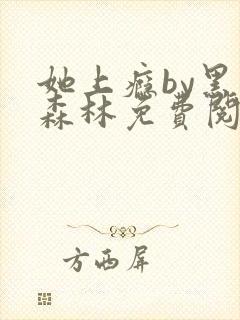 她上瘾by黑
森林免費閱
方西屏